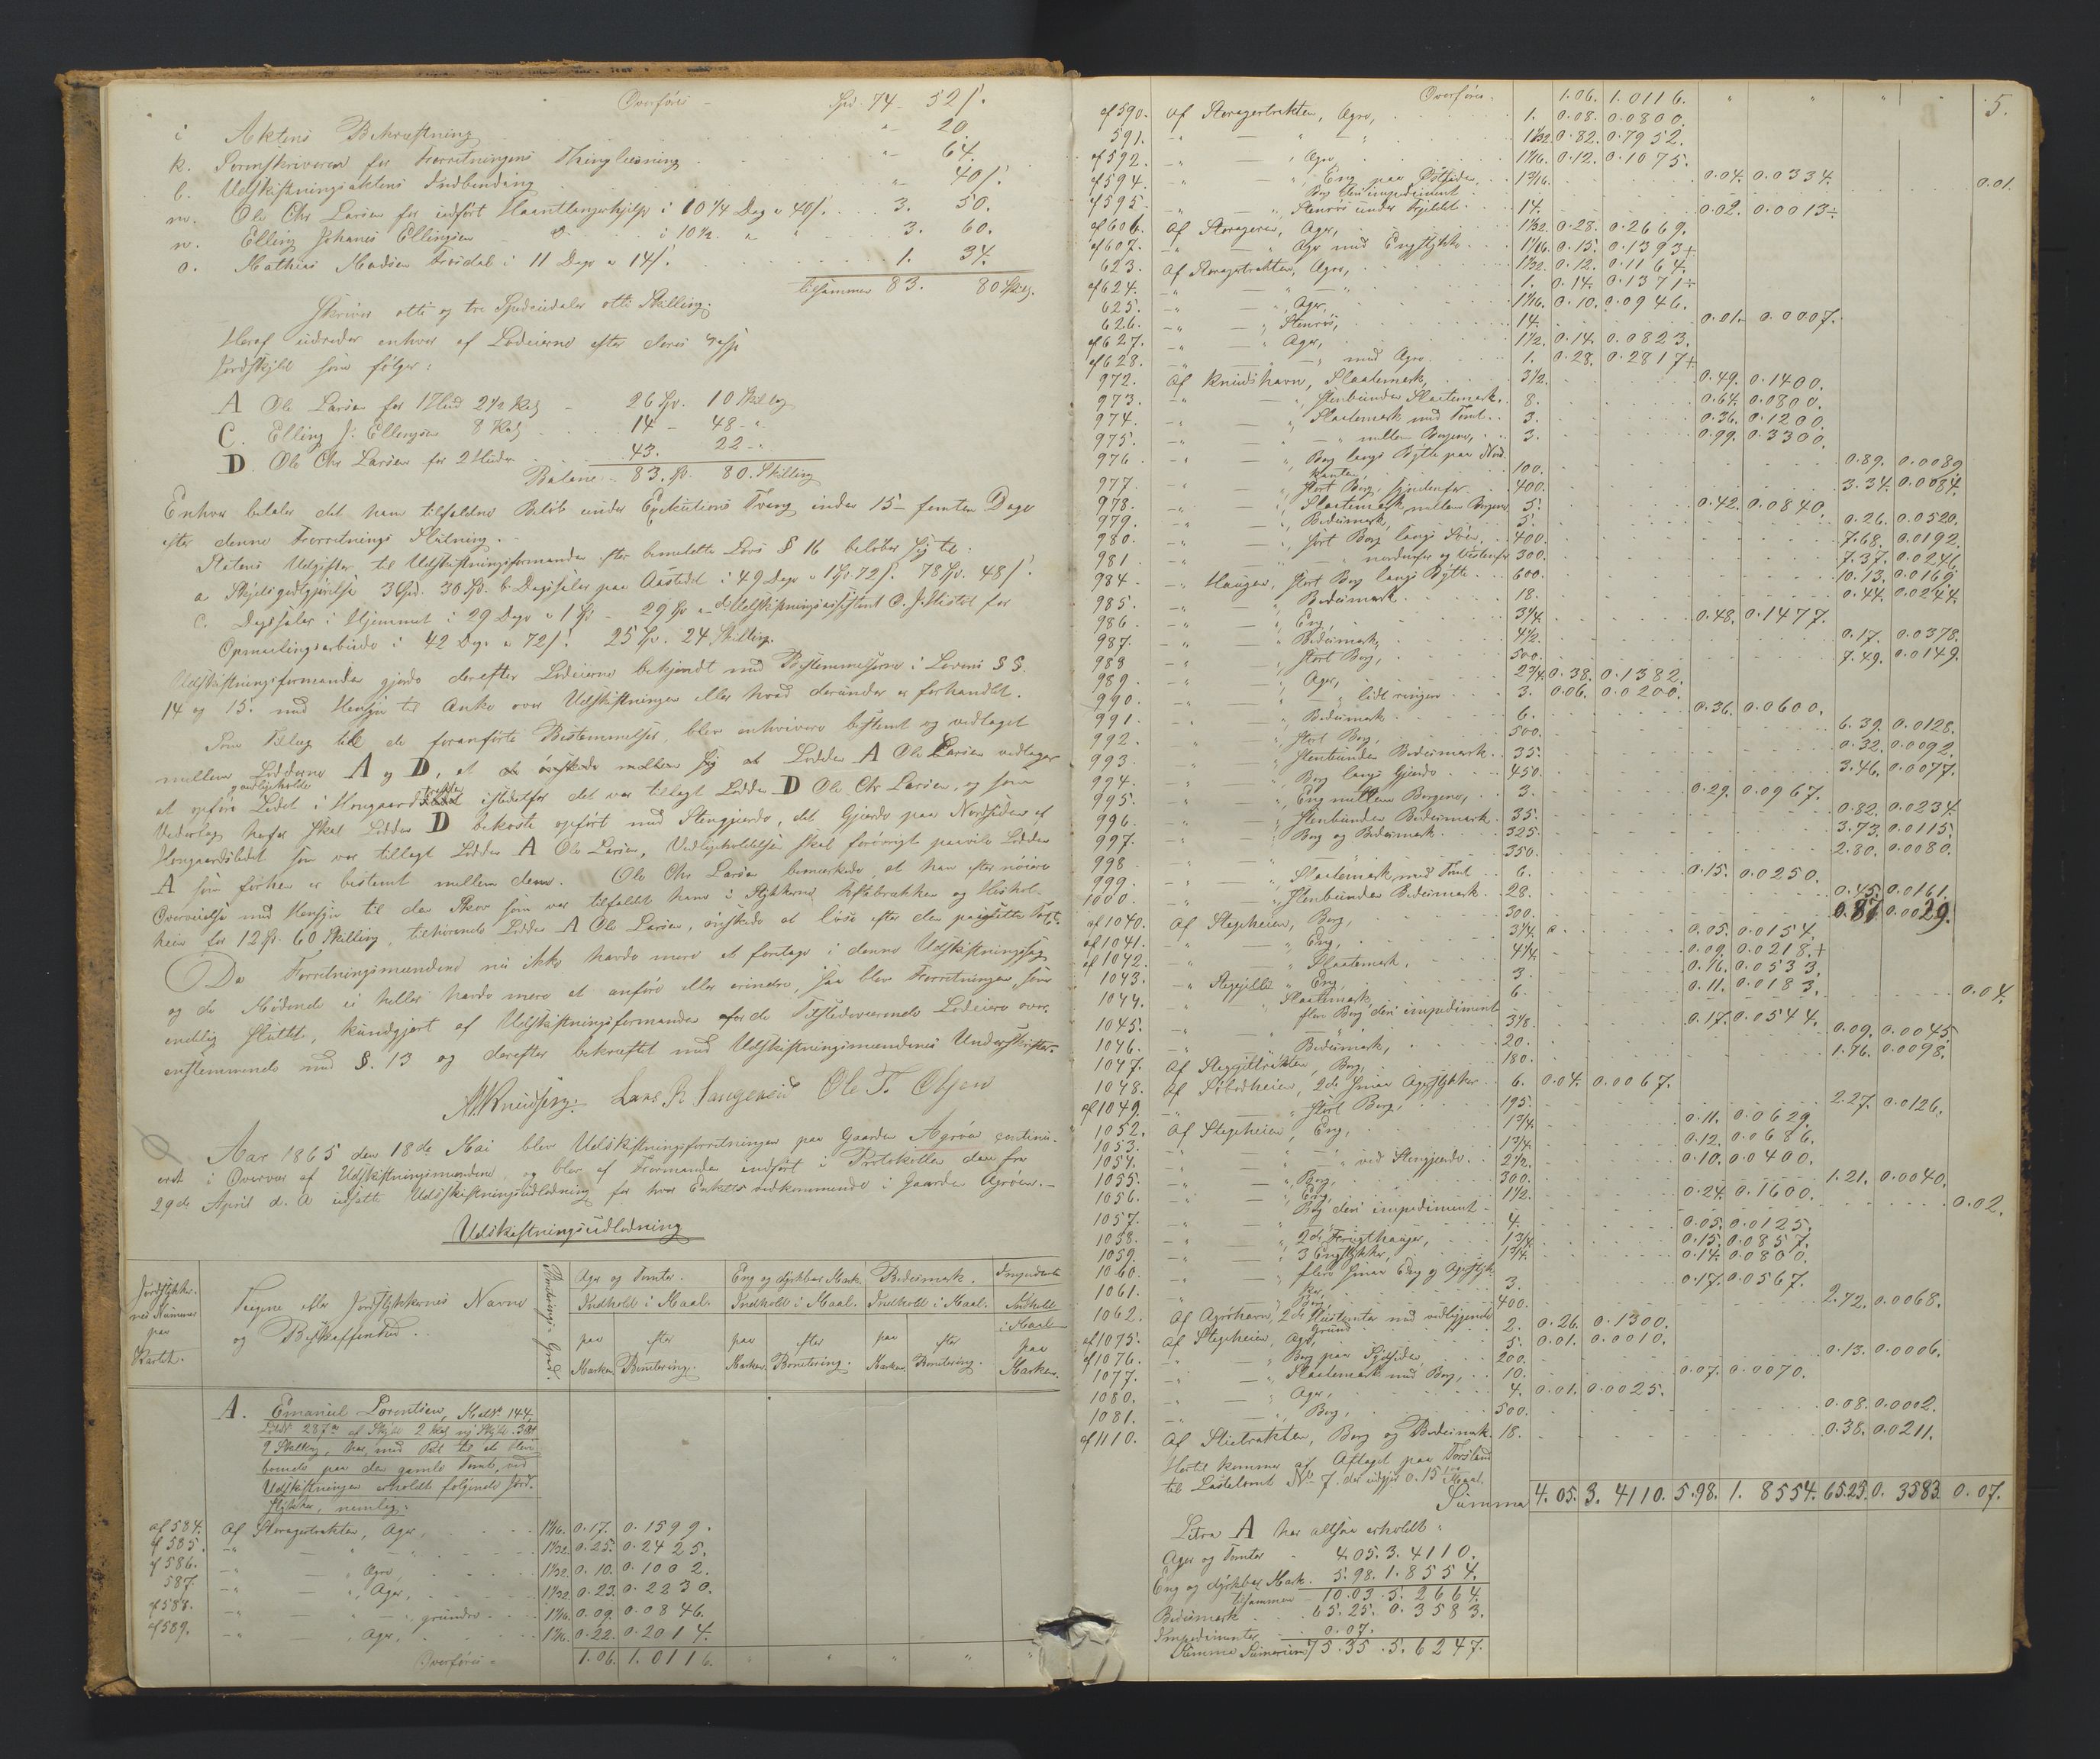 Overføres - Spd. 74 - 52 ſ.
i Aktens Bekræftning " 20.
k. Sorenskriveren for Forretningens Thinglæsning " 64.
l. Udskiftningsaktens Indbinding " 40 ſ.
m. Ole Chr Larsen for udført Haandtlangerhjelp i 10 1/4 Dag a 40 ſ. 3. 50.
n. Elling Johanes Ellingsen i 10 1/2 " 3. 60.
o. Mathias Madsen i 11 Dage a 14 ſ. 1. 34.
tilsammen 83. 80 Skilg.
Skriver otti og tre Speciedaler otti Skilling.
Heraf udreder enhver af Lodeierne efter deres resp
Jordskyld som følger:
A Ole Larsen for 1 Hud 2 1/2 Kalv - 26 Sp. 10 Skilling
C. Elling J. Ellingsen 8 14 - 48 - "
D. Ole Chr Larsen for 2 Huder 43. 22 - "
Balance - 83. Sp. 80. Skilling
Enhver betaler det ham tilfaldne Beløb under Exekutions Tvang inden 15 - femten Dage
efter denne Forretnings Slutning. -
Statens Udgifter til Udskiftningsformanden efter bemeldte Lovs § 16 beløber sig til:
a. Skydsgodtgjørelse 3 Spd. 30 b. Dagpenge paa Aastedet i 49 Dage a 1 Sp. 72 ſ. 78 Sp. 48 ſ.
c. i Hjemmet i 29 Dage a 1 Sp. - 29 Sp. d. Udskiftningsassistent for
Opmaalingsarbeide i 42 Dage a 72 ſ. 25 Sp. 24 Skilling.
Udskiftningsformanden gjorde derefter Lodeierne bekjendt med Bestemmelserne i Lovens §§
14 og 15. med Hensyn til Anke over Udskiftningen eller hvad derunder er forhandlet.
Som Tillæg til de foranførte Bestemmelser, blev enhvidere bestemt og vedtaget
mellem Lodderne A og D, at de ønskede mellem sig at Lodden A Ole Larsen vedtager
og vedligeholde
at opføre Ledet i istedetfor det var tillagt Lodden D Ole Chr Larsen, og som
Vederlag herfor skal Lodden D bekoste opført med Stengjerde, det Gjerde paa Nordsiden af
som var tillagt Lodden A Ole Larsen, Vedligeholdelsen skal forøvrigt paahvile Lodden
A som forhen er bestemt mellem dem. Ole Chr Larsen bemærkede, at han efter nøiere
Overveielse med Hensyn til den Skov som var tilfaldt ham i Stykkerne og
heia for 12 Sp. 60 Skilling, tilhørende Lodden A Ole Larsen, ønskede at løse efter den paasatte Taxt.
Da Forretningsmændene nu ikke havde mere at foretage i denne Udskiftningssag
og de Mødende ei heller havde mere at anføre eller erindre, saa blev Forretningen, som
endelig sluttet, kundgjort af Udskiftningsformanden for de Tilstedeværende Lodeiere over-
ensstemmende med § 13 og derefter bekræftet med Udskiftningsmændenes Underskrifter.
Ole T. Olsen
Aar 1865 den 18de Mai blev Udskiftningsforretningen paa Gaarden Agerøen continu-
eret i Overvær af Udskiftningsmændene, og blev af Formanden indført i Protokollen den fra
29de April d. A. udsatte Udskiftningsudlodning for hver Enkelts vedkommende i Gaarden Agerøen. -
Udskiftningsudlodning
Jordstykker-
nes Nummer
paa
Kartet.
Teigene eller Jordstykkernes Navne
og Beskaffenhed.
Boniterings Grad.
Ager og Tomter. Eng og dyrkbar Mark. Bedesmark. Impedimenter
Indhold i Maal. Indhold i Maal. Indhold i Maal. Indhold i Maal
paa Marken. efter Bonitering. paa Marken. efter Bonitering. paa Marken. efter Bonitering. paa Marken.
A. Emanuel Lorentsen, Matr. No 144
Løbnr. 287 a af Skyld 2
9 Skilling, har, med Ret til at blive
boende paa den gamle Tomt, ved
Udskiftningen erholdt følgende Jord-
stykker, nemlig:
af 584. Af Storagertrakten, Ager, 1 1/16. 0.17. 0.1599.
af 585. 1 1/32. 0.25. 0.2425.
af 586. Ager, 1 1/32. 0.10. 0.1002.
587. Ager, 1 1/32. 0.23. 0.2230.
af 588. grundere 1 1/16. 0.09. 0.0846.
af 589. Ager, 0.22. 0.2014.
Overføres = 1.06. 1.0116. " " " " "
5.
Overføres. 1.06. 1.0116. " " " "
af 590. Af Storagertrakten, Ager, 1. 0.08. 0.0800.
591. 1 1/32. 0.82. 0.7952.
af 592. Ager 1 1/16. 0.12. 0.1075.
af 594. Eng paa Østsiden, 1 3/16. 0.04. 0.0334.
Berg impediment 0.01.
af 595. Stenrøs under Fjeldet 14. 0.02. 0.0013÷
af 606. Af Storageren, Ager, 1 1/32. 0.28. 0.2669.
af 607. Ager med Engstykke 1 1/16. 0.15. 0.1393+
623. Af Storagertrakten, Ager, 1 1/32. 0.12. 0.1164.
af 624. 1. 0.14. 0.1371÷
625. Ager, 1 1/16. 0.10. 0.0946.
626. Stenrøs, 14. 0.01. 0.0007.
af 627. Ager, 1 1/2. 0.14. 0.0823.
af 628. med Ager 1. 0.28. 0.2817+
972. Af Knudshavn, Slaatemark, 3 1/2. 0.49. 0.1400.
973. Stenbunden Slaatemark, 8. 0.64. 0.0800.
974. Slaatemark med Tomt 3. 0.36. 0.1200.
975. mellem Bergene, 3. 0.99. 0.3300.
976. Berg langs Bytte paa Nord-
kanten 100. 0.89. 0.0089
977. Stort Berg, søndenfor 400. 3.34. 0.0084.
978. Slaatemark mellem Bergene 5. 0.42. 0.0840.
979. Bedesmark, 5. 0.26. 0.0520.
980. Stort Berg langs Søen, 400. 7.68. 0.0192.
981. nordenfor og Vestenfor 300. 7.37. 0.0246.
984. Haugen, Stort Berg langs Bytte 600. 10.13. 0.0169.
985. Bedesmark 18. 0.44. 0.0244.
986. Eng, 3 1/4. 0.48. 0.1477.
987. Bedesmark, 4 1/2. 0.17. 0.0378.
988. Stort Berg, 500. 7.49. 0.0149.
989. Ager, 2 3/4. 0.38. 0.1382.
990. lidt ringere 3. 0.06. 0.0200.
991. Bedesmark 6. 0.36. 0.0600.
992. Stort Berg, 500. 6.39. 0.0128.
993. Stenbunden Bedesmark 35. 0.32. 0.0092.
994. Berg langs Gjerde 450. 3.46. 0.0077.
995. Eng mellem Bergene, 3. 0.29. 0.0967.
996. Stenbunden Bedesmark 35. 0.82. 0.0234.
997. Berg og Bedesmark 325. 3.73. 0.0115.
998. 350. 2.80. 0.0080.
999. Slaatemark med Tomt 6. 0.15. 0.0250.
1000. Stenbunden Bedesmark 28. 0.45. 0.0161.
af 1040. Af Stegeheien, Berg, 300. 0.87. 0.0029.
af 1041. Eng, 3 1/4. 0.05. 0.0154.
af 1042. Slaatemark, 4 1/4. 0.09. 0.0218+
1043. Eng, 3. 0.16. 0.0533.
1044. Slaatemark, 6. 0.11. 0.0183.
flere Berg deri impediment 0.04.
1045. 3 1/8. 0.17. 0.0544.
1046. Bedesmark, 20. 0.09. 0.0045.
1047. Berg, 180. 1.76. 0.0098.
1048. 2de smaa Agerstykker 6. 0.04. 0.0067.
af 1049. Stort Berg, 195. 2.27. 0.0126.
1052. Af Stegeheien, Eng, 1 3/4. 0.11. 0.0629.
1053. 1 3/4. 0.12. 0.0686.
1054. ved Stengjerde 2 1/2. 0.10. 0.0400.
1055. Berg, 300. 1.21. 0.0040.
1056. Eng, 1 1/2. 0.24. 0.1600.
Berg deri impediment 0.02.
1057. 4. 0.05. 0.0125.
1058. 2de Frugthauger, 1 3/4. 0.15. 0.0857.
1059. 3 Engstykker, 1 3/4. 0.14. 0.0800.
1060. flere smaa Eng og Agerstyk-
ker, 3. 0.17. 0.0567.
1061. Berg, 400. 2.72. 0.0068.
1062. Af Agerøhavn, 2de Hustomter med vedliggende
Grund 2. 0.26. 0.1300.
af 1075. Af Stegeheien, Ager, 5. 0.01. 0.0010.
af 1076. Berg paa Sydsiden, 200. 0.13. 0.0006.
1077. Slaatemark med Berg, 10. 0.07. 0.0070.
1080. Ager, 4. 0.01. 0.0025.
1081. Berg, 500. 0.08. 0.0002.
af 1110. Berg og Bedesmark 18. 0.38. 0.0211.
Hertil kommer af Aftaget paa
til Lastetomt No 7. der udgjør 0.15 Maal.
Summa 4.05. 3.4110. 5.98. 1.8554. 65.25. 0.3583 0.07.
Litra A har altsaa erholdt:
Ager og Tomter 4.05. 3.4110.
Eng og dyrkbar Mark. 5.98. 1.8554.
tilsammen - 10.03. 5.2664.
Bedesmark 65.25. 0.3583.
Impedimenter 0.07.
Summa Summarum 75.35. 5.6247.